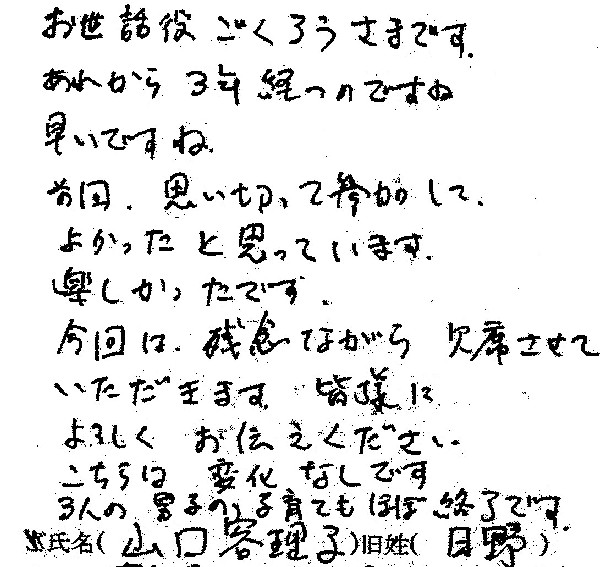 お世話役 ごくろうさまです。
あれから 3年 経つのですね
早いですね。
前回、思い切って参加して、
よかったと思っています。
楽しかったです。
今回は、残念ながら 欠席させて
いただきます。皆様に
よろしく お伝えください
こちらは 変化 なしです
3人の 男子の、子育ても ほぼ 終了です。
氏名( 山口容理子 )旧姓( 日野 )